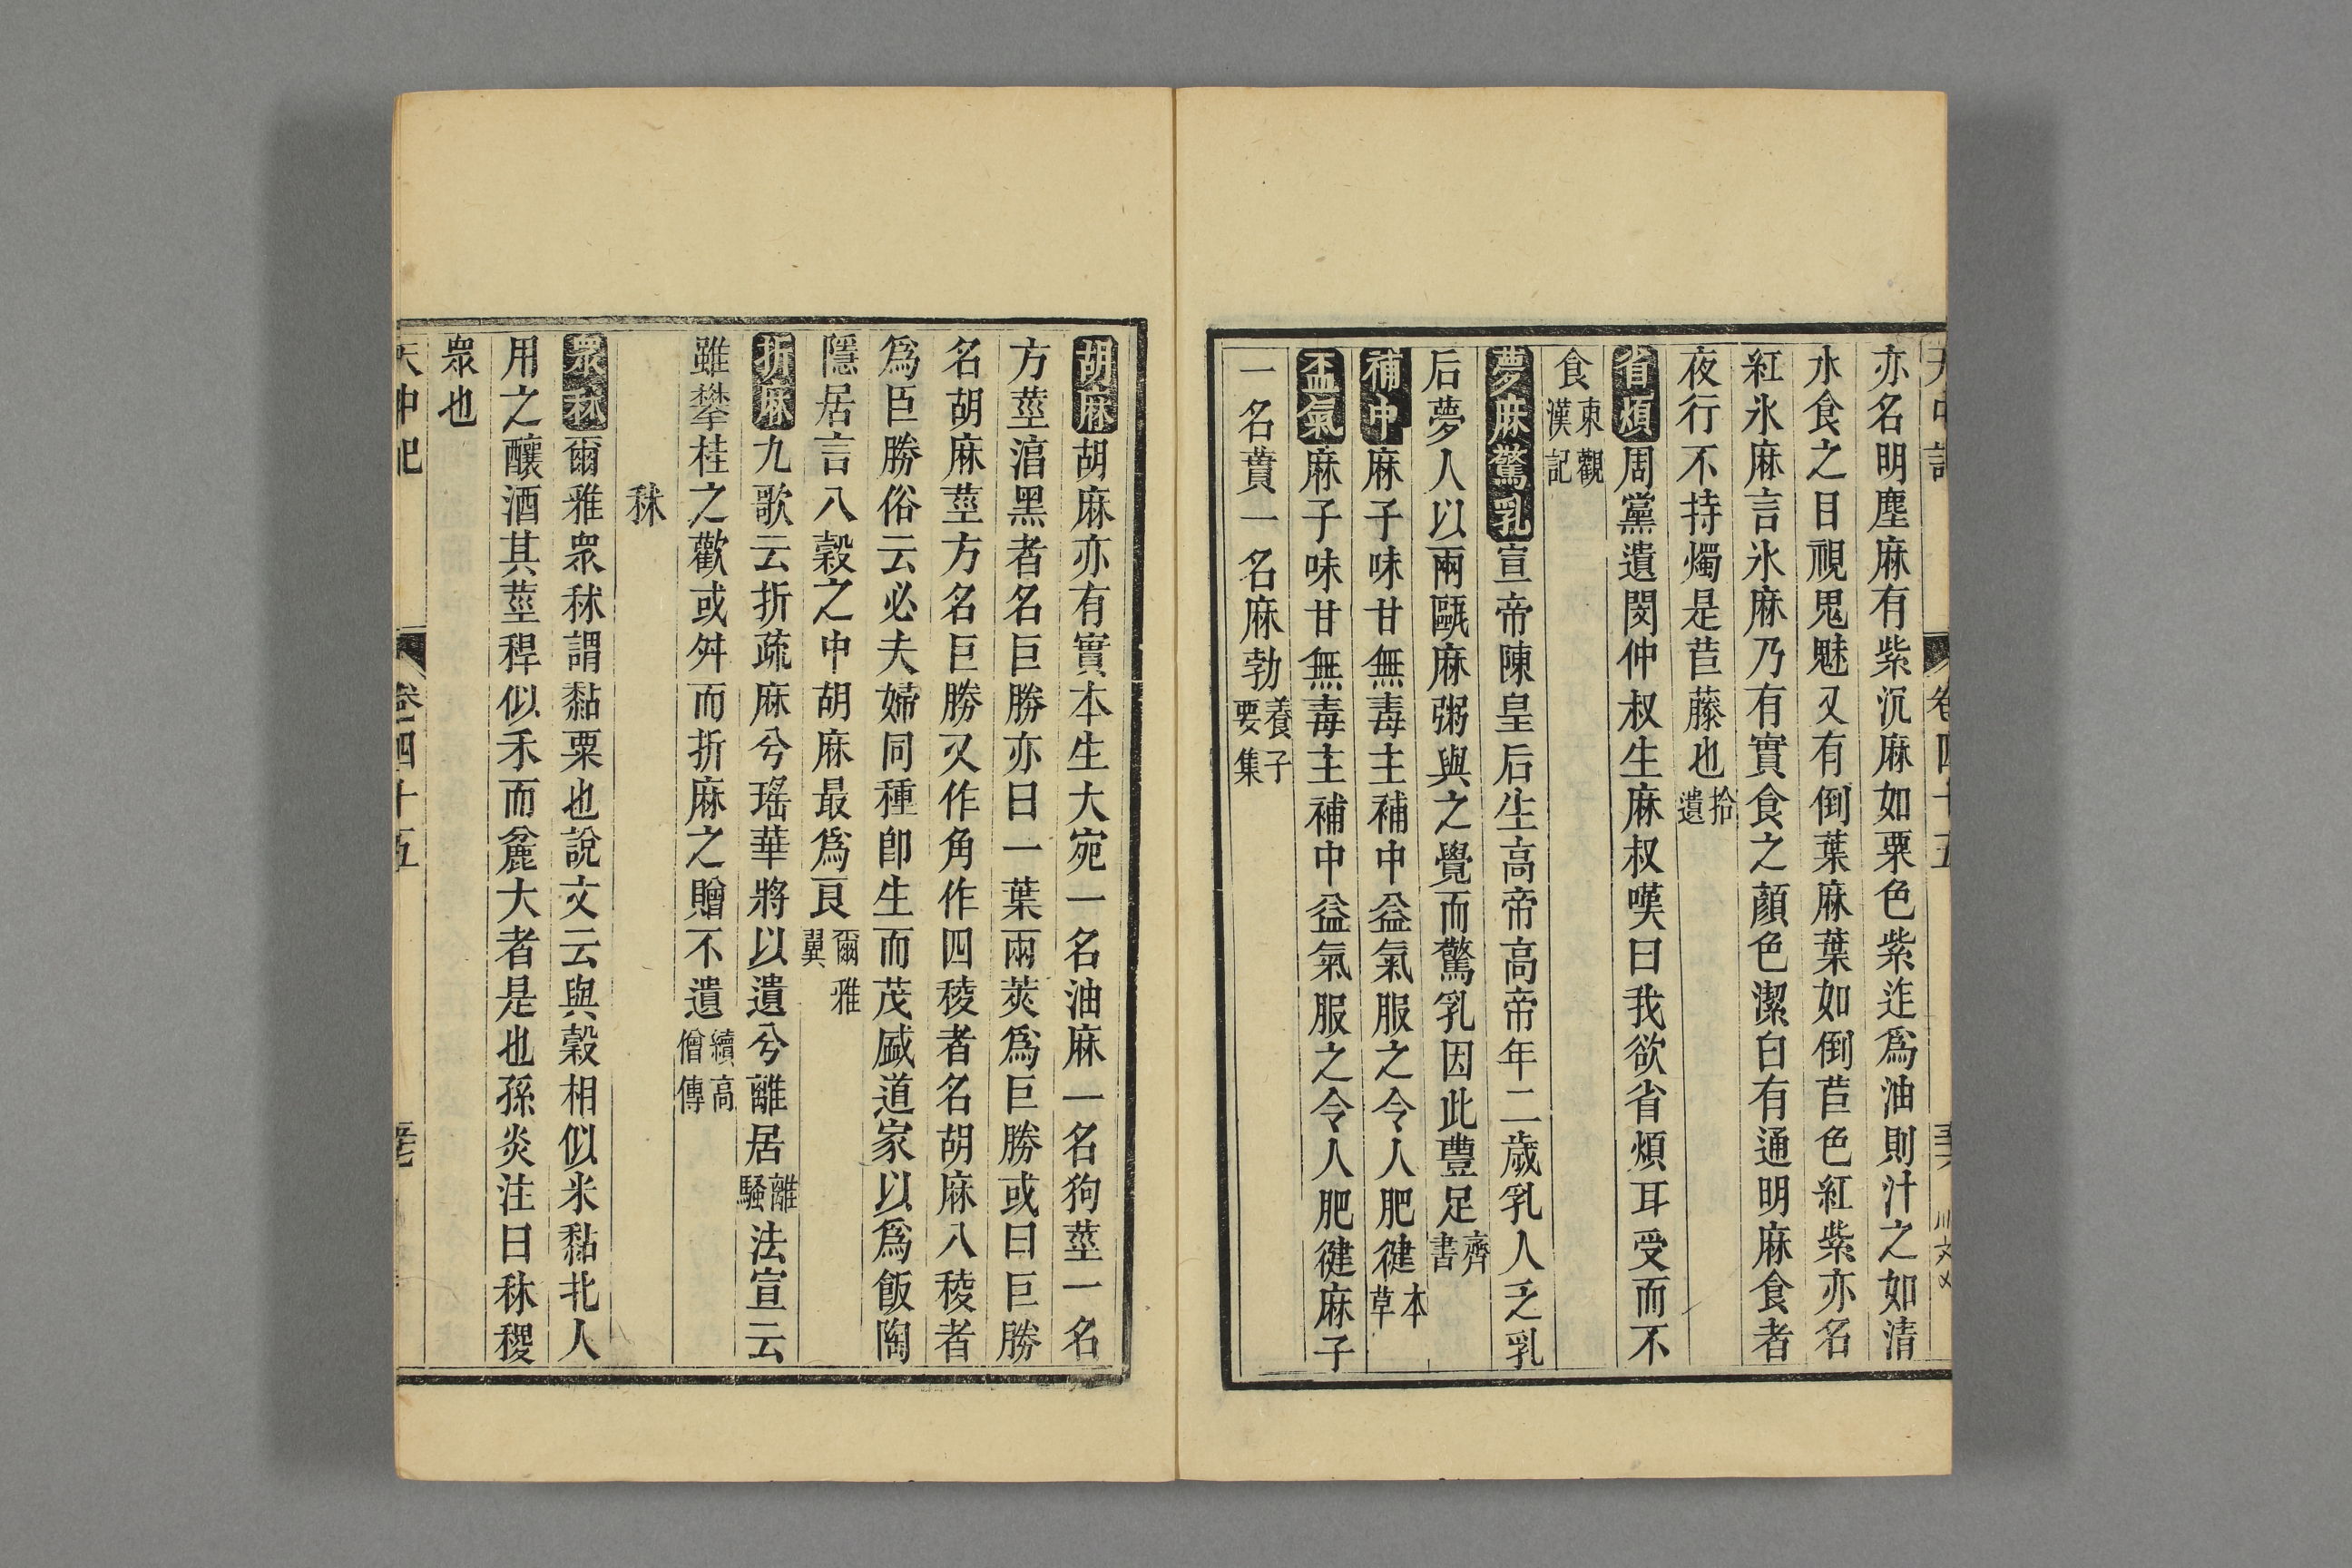 亦名明塵麻有紫沉麻如粟色紫迮爲油則汁之如清
水食之目視鬼魅又有倒葉麻葉如倒苣色紅紫亦名
紅氷麻言氷麻乃有實食之顏色潔白有通明麻食者
夜行不持燭是苣藤也拾遺
省煩周黨遺閔仲叔生麻叔嘆曰我欲省煩耳受而不
食東觀漢記
夢麻驚乳宣帝陳皇后生高帝高帝年二歲乳人乏乳
后夢人以兩甌麻粥與之覺而驚乳因此豊足齊書
補中麻子味甘無毒主補中益氣服之令人肥健本草
益氣麻子味甘無毒主補中益氣服之令人肥健麻子
一名蕡一名麻勃養子要集
胡麻胡麻亦有實本生大宛一名油麻一名狗莖一名
方莖湻黑者名巨勝亦曰一葉兩莢爲巨勝或曰巨勝
名胡麻莖方名巨勝又作角作四稜者名胡麻八稜者
爲臣勝俗云必夫婦同種卽生而茂盛道家以爲飯陶
隱居言八穀之中胡麻最爲良爾雅翼
折麻九歌云折疏麻兮瑤華將以遺兮離居離騷法宣云
雖攀桂之歡或舛而折麻之贈不遺續高僧傳
秫
衆秫爾雅衆秫謂黏粟也說文云與穀相似米黏北人
用之釀酒其莖稈似禾而麄大者是也孫炎注曰秫稷
衆也
天中記 卷四十五